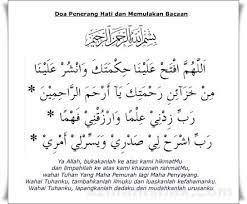 Doa Penerang Hati dan Memulakan Bacaan
بِسْمِ اللَّهِ الرَّحْمَنِ الرَّحِيمِ
اَللَّهُمَّ افْتَحْ عَلَيْنَا حِكْمَتَكَ وَانْشُرْ عَلَيْنَا
مِنْ خَزَائِنِ رَحْمَتِكَ يَا أَرْحَمَ الرَّاحِمِيْنَ *
رَبِّ زِدْنِيْ عِلْمًا وَارْزُقْنِيْ فَهْمًا *
رَبِّ اشْرَحْ لِيْ صَدْرِيْ وَيَسِّرْلِيْ أَمْرِيْ *
Ya Allah, bukakanlah ke atas kami hikmatMu
dan limpahilah ke atas kami khazanah rahmatMu,
wahai Tuhan Yang Maha Pemurah lagi Maha Penyayang.
Wahai Tuhanku, tambahkanlah ilmuku dan luaskanlah kefahamanku.
Wahai Tuhanku, lapangkanlah dadaku dan mudahkanlah urusanku.